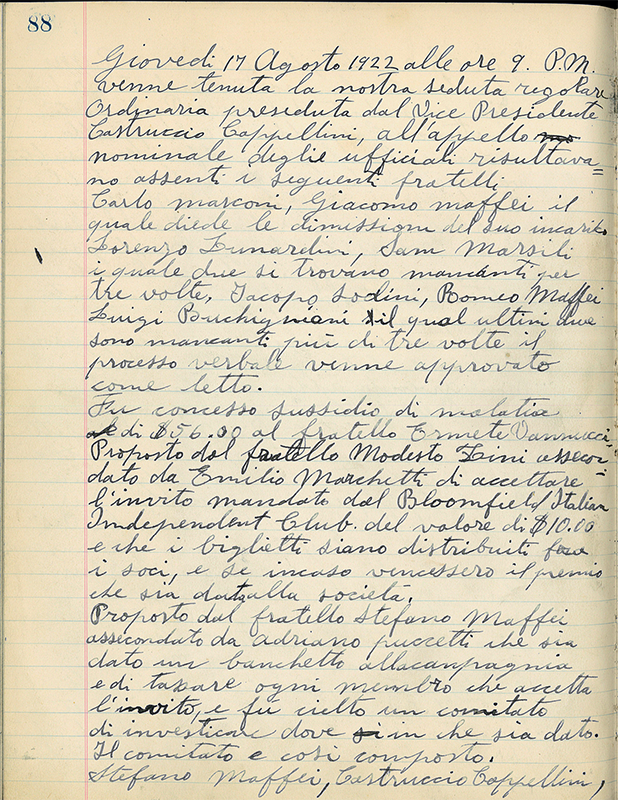 88
Giovedi 17 Agosto 1922 alle ore 9. P.M.
venne tenuta la nostra seduta regolare
Ordinaria preseduta dal Vice Presidente
Castruccio Cappellini, all'appello
nominale deglie ufficiali risultava=
no assenti i seguenti fratelli
Carlo Marconi, Giacomo Maffei il
quale diede le dimissioni del suo incarito
Lorenzo Lunardini, Sam Marsili
i quale due si trovano mancanti per
tre volte, Jacopo Sodini, Romeo Maffei
Luigi Buchigniani il qual ultini due
sono mancanti più di tre volte il
processo verbale venne approvato
come letto.
Fu concesso sussidio di malatia
di $56.00 al fratello Ermete Vannucci
Proposto dal fratello Modesto Lini assecon
dato da Emilio Marchetti di accettare
l'invito mandato dal Bloomfield Italian
Independent Club. del valore di $10.00
e che i biglietti siano distribuiti
i soci, e se incaso vincessero il premio
che sia dato alla societa.
Proposto dal fratello Stefano Maffei
assecondato da Adriano Puccetti che sia
dato un banchetto allacanpagnia
e di taxare ogni membro che accetta
l'invito, e fu cielto un comitato
di investicare dove in che sia dato.
Il comitato e cosi composto.
Stefano Maffei, Castruccio Cappellini,